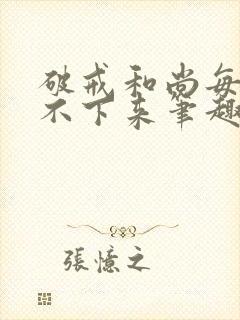 破戒和尚每
不下来笔趣
張憶之